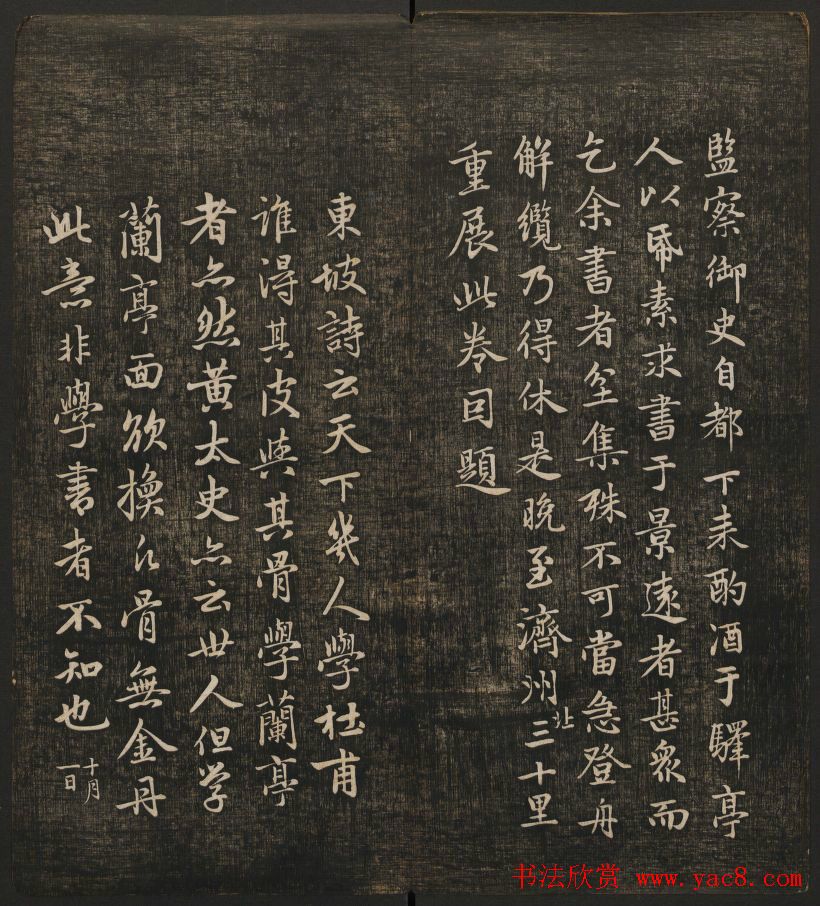 監察御史自都下来酌酒于驛亭
人以帋素求書于景遠者甚衆而
乞余書者坌集殊不可當急登舟
解纜乃得休是晚至濟州北三十里
重展此卷因題
東坡詩云天下幾人學杜甫
誰得其皮與其骨學蘭亭
者亦然黄太史亦云世人但学
蘭亭面欲換凡骨無金丹
此意非學書者不知也十月
一日
书法欣赏 www.yac8.com